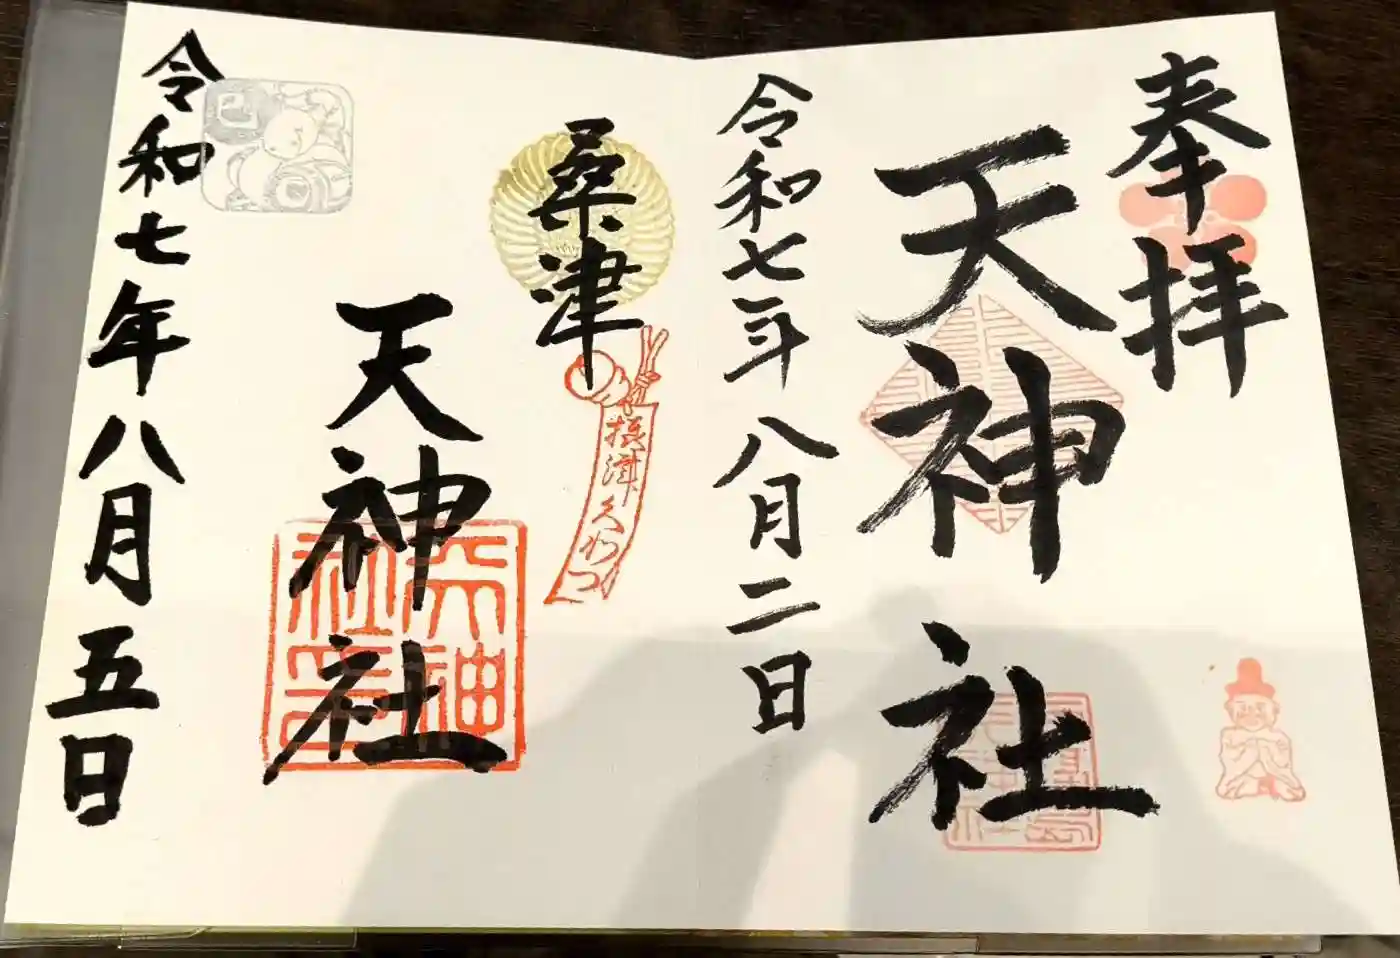 奉拝
天神社
令和七年八月二日
桑津
摂津くわづ
天神社
天神社
令和七年八月五日
巳